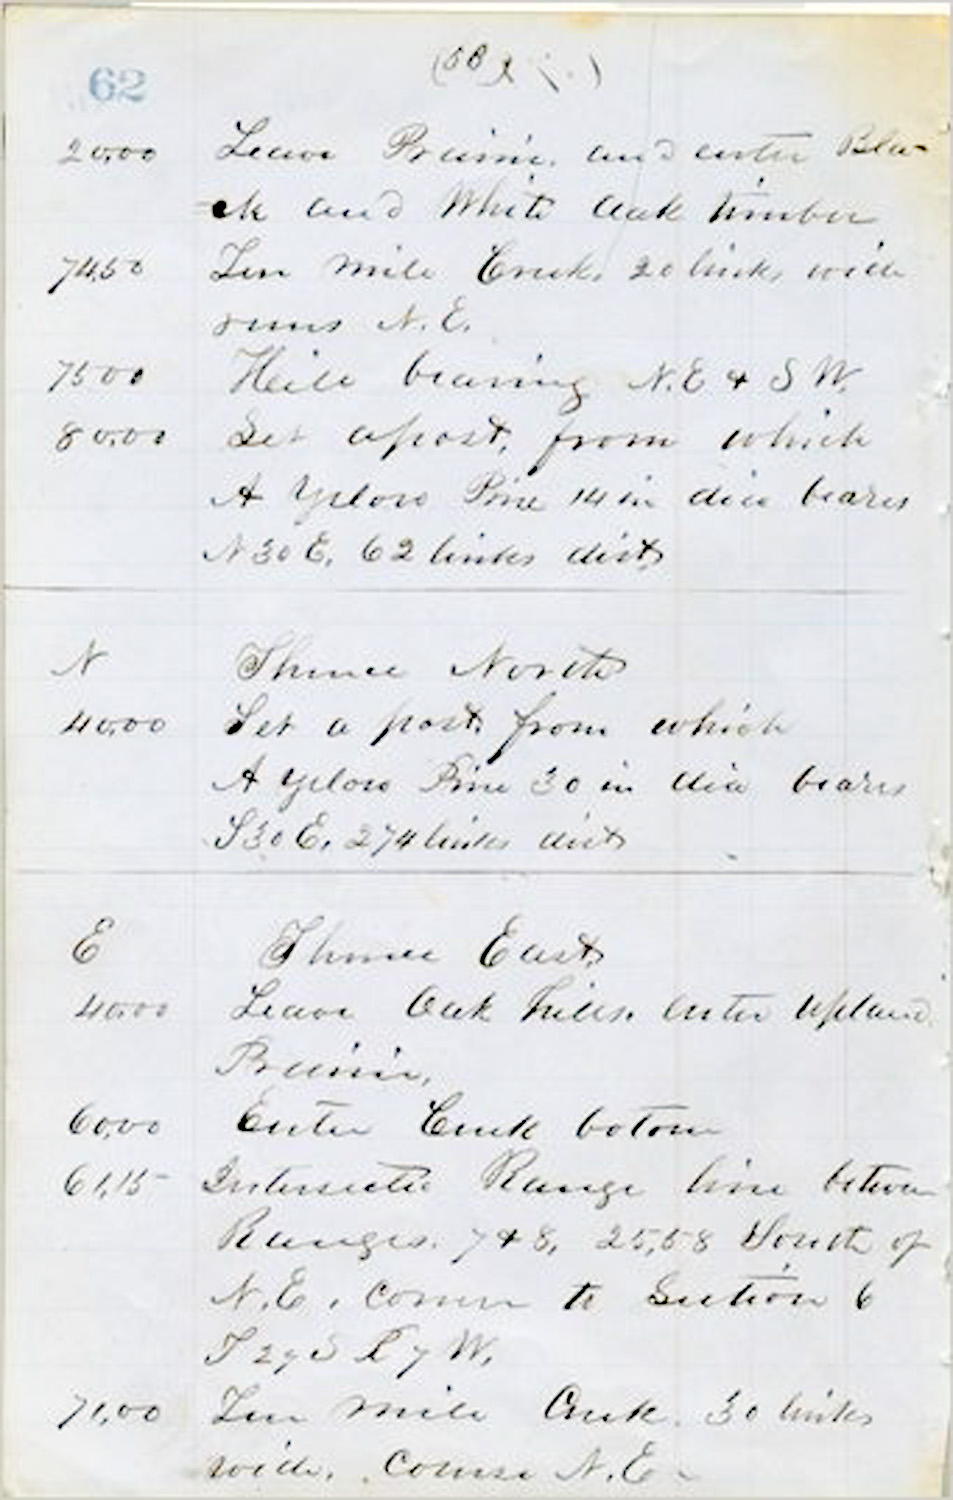 62
20,00 Leave Prairie. and enter Bla-
=ck and White Oak timber
74,50 Ten mile Creek, 20 links wide
runs N.E.
75 00 Hill bearing N.E & S W.
80,00 Set apost, from which
A Yelow Pine 14 in dia bears
N 30 E, 62 links dist
N Thence North
40,00 Set a post from which
A Yelow Pine 30 in dia bears
S 30 E, 274 links dist
E Thence East
40,00 Leave Oak hills. enter upland
Prairie,
60,00 Enter Creek botom
61,15 Intersected Range line betwen
Ranges. 7 & 8, 25,58 South of
N.E, corner to Section 6
T 27 S R 7 W.
71,00 Ten mile Creek. 30 links
wide, Course N.E-